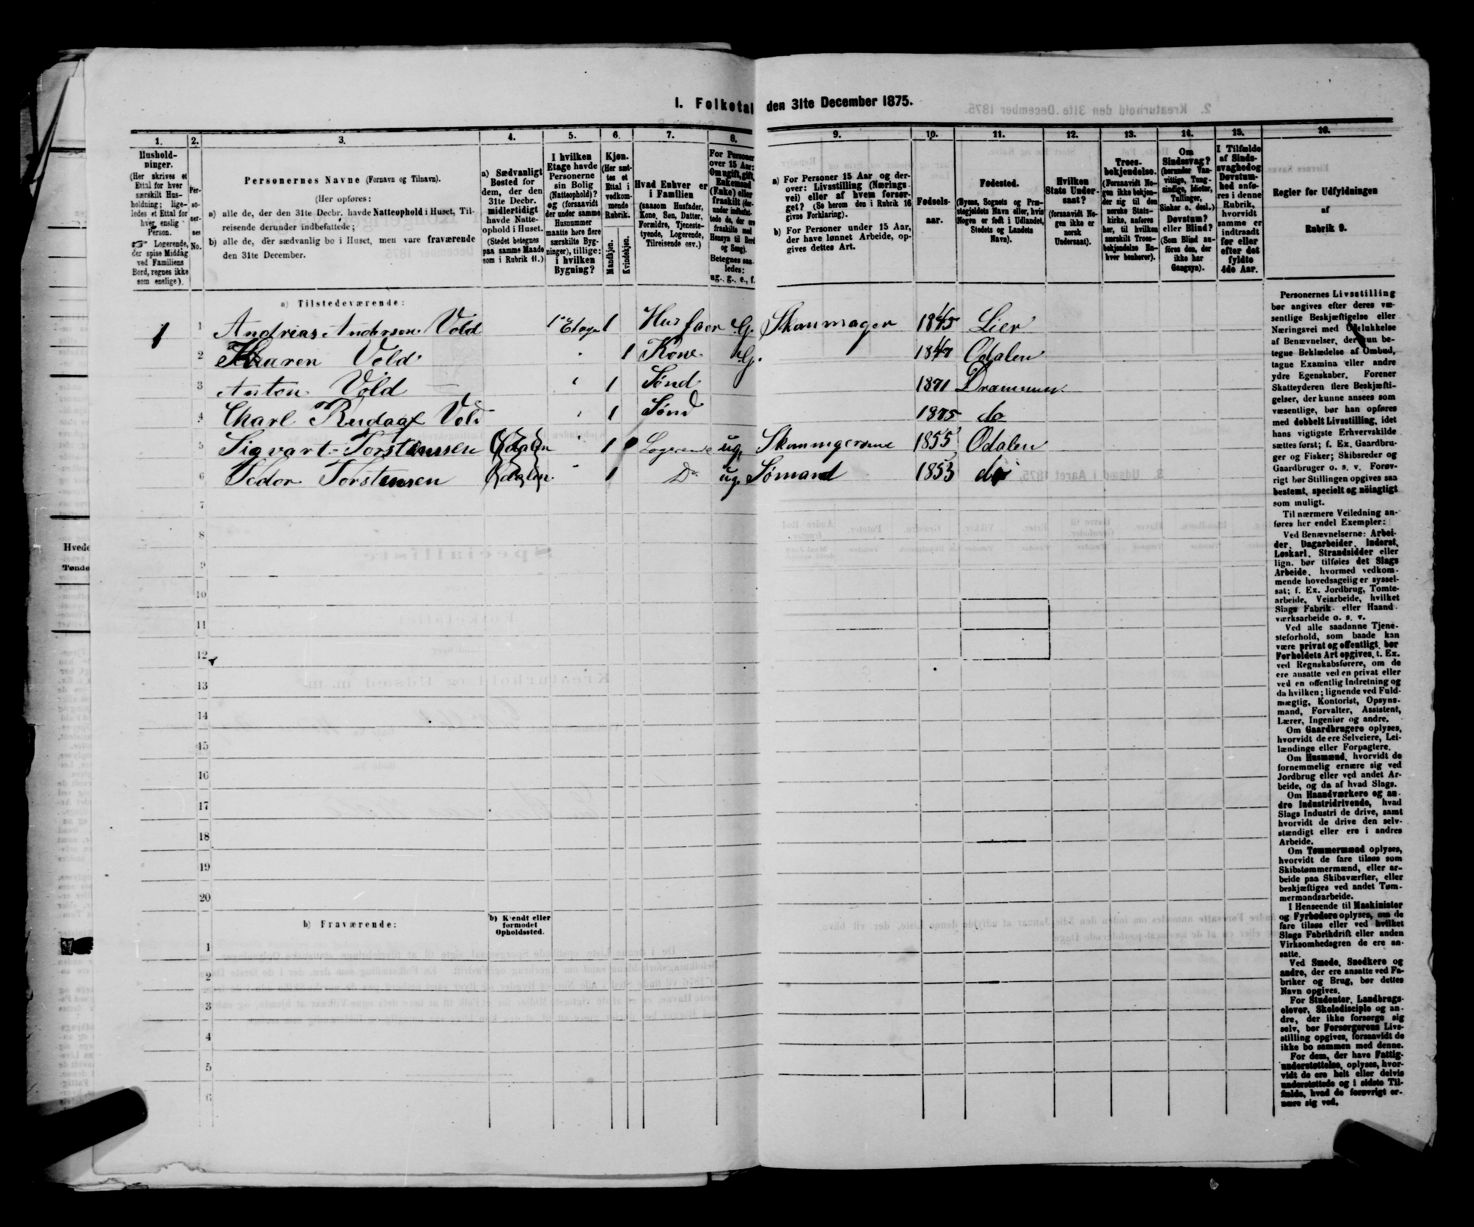 I. Folketal den 31te December 1875.
1. 2. 3. 4. 5. 6. 7. 8. 9. 10. 11. 12. 13. 14. 15. 16.
Hushold-
ninger.
(Her skrives et
Ettal for hver
særskilt Hus-
holdning; lige-
ledes et Ettal for
hver enslig
Person.
☞ Logerende,
der spise Middag
ved Familiens
Bord, regnes ikke
som enslige).
Per-
so-
ner-
nes
No.
Personernes Navne (Fornavn og Tilnavn).
(Her opføres:
a) alle de, der den 31te Decbr. havde Natteophold i Huset, Til-
reisende derunder indbefattede;
b) alle de, der sædvanlig bo i Huset, men vare fraværende
den 31te December.
a) Sædvanligt
Bosted for
dem, der den
31te Decbr.
midlertidigt
havde Natte-
ophold i Huset.
(Stedet betegnes
paa samme Maade
som i Rubrik 11.)
I hvilken
Etage havde
Personerne
sin Bolig
(Natteophold)?
og (forsaavidt
der under samme
Husnummer
maatte høre flere
særskilte Byg-
ninger), tillige:
i hvilken
Bygning?
Kjøn.
(Her sæt-
tes et
Ettal i
vedkom-
mende
Rubrik.
Mandkjøn.
Kvindekjøn.
Hvad Enhver er
i Familien
(saasom Husfader,
Kone, Søn, Datter,
Forældre, Tjeneste-
tyende, Logerende,
Tilreisende osv.)
For Personer
over 15 Aar:
Om ugift, gift,
Enkemand
(Enke) eller
fraskilt
Betegnes saa-
ledes:
ug., g., e., f.
a) For Personer 15 Aar og der-
over: Livsstilling (Nærings-
vei) eller af hvem forsør-
get? (Se herom den i Rubrik 16
givne Forklaring).
b) For Personer under 15 Aar,
der have lønnet Arbeide, op-
gives dettes Art.
Fødsels-
aar.
Fødested.
(Byens, Sognets og Præ-
stegjeldets Navn eller, hvis
Nogen er født i Udlandet,
Stedets og Landets
Navn).
Hvilken
Stats Under-
saat?
(forsaavidt No-
gen ikke er
norsk
Undersaat).
Troes-
bekjendelse.
(Forsaavidt No-
gen ikke bekjen-
der sig til den
norske Stats-
kirke, anføres
her, til hvilken
særskilt Troes-
bekjendelse En-
hver henhører).
Om
Sindssvag?
(herunder Van-
vittige, Tung-
sindige, Idioter,
Tullinger,
Sinker o. desl.)
Døvstum?
eller Blind?
(Som Blind an-
føres den, der
ikke har
Gangsyn).
I Tilfælde
af Sinds-
svaghed og
Døvstum-
hed anfø-
res i denne
Rubrik,
hvorvidt
samme er
indtraadt
før eller
efter det
fyldte
4de Aar.
Regler for Udfyldningen
af
Rubrik 9.
a) Tilstedeværende:
1 1 Andreas Andersen Vold 1 Etage 1 Husfaer G. Skoumager 1845 Lier
2 Kaaren Vold " 1 Kone G. 1847 Odalen
3 Anton Vold " 1 Sønd 1871 Drammen
4 Charl Vold " 1 Sønd 1875 do
5 Sigvart Torstensen Odalen " 1 Logerende ug. 1855 Odalen
6 Torstensen Odalen " 1 Do ug Sømand 1853 do
7
8
9
10
11
12
13
14
15
16
17
18
19
20
b) Fraværende:
b) Kjendt eller
formodet
Opholdssted.
1
2
3
4
5
6
Personernes Livsstilling
bør angives efter deres væ-
sentlige Beskjæftigelse eller
Næringsvei med Udelukkelse
af Benævnelser, der kun be-
tegne Beklædelse af Ombud,
tagne Examina eller andre
ydre Egenskaber. Forener
Skatteyderen flere Beskjæfti-
gelser, der kunne ansees som
væsentlige, bør han opføres
med dobbelt Livsstilling, idet
hans vigtigste Erhvervskilde
sættes først; f. Ex. Gaardbru-
ger og Fisker; Skibsreder og
Gaardbruger o. s. v. Forøv-
rigt bør Stillingen opgives saa
bestemt, specielt og nöiagtigt
som muligt.
Til nærmere Veiledning an-
føres her endel Exempler:
Ved Benævnelserne: Arbei-
der, Dagarbeider, Inderst,
Løskarl, Strandsidder eller
lign. bør tilføies det Slags
Arbeide, hvormed vedkom-
mende hovedsagelig er syssel-
sat; f. Ex. Jordbrug, Tomte-
arbeide, Veiarbeide, hvilket
Slags Fabrik- eller Haand-
værksarbeide o. s. v.
Ved alle saadanne Tjene-
steforhold, som baade kan
være privat og offentligt, bør
Forholdets Art opgives, t. Ex.
ved Regnskabsførere, om de
ere ansatte ved en privat eller
ved en offentlig Indretning og
da hvilken; lignende ved Fuld-
mægtig, Kontorist, Opsyns-
mand, Forvalter, Assistent,
Lærer, Ingeniør og andre.
Om Gaardbrugere oplyses,
hvorvidt de ere Selveiere, Lei-
lændinge eller Forpagtere.
Om Husmænd, hvorvidt de
fornemmelig ernære sig ved
Jordbrug eller ved andet Ar-
beide, og da af hvad Slags.
Om Haandværkere og an-
dre Industridrivende, hvad
Slags Industri de drive, samt
hvorvidt de drive den selv-
stændigt eller ere i andres
Arbeide.
Om Tømmermænd oplyses,
hvorvidt de fare tilsøs som
Skibstømmermænd, eller ar-
beide paa Skibsværfter, eller
beskjæftiges ved andet Tøm-
mermandsarbeide.
I Henseende til Maskinister
og Fyrbødere oplyses, om de
fare tilsøs eller ved hvilket
Slags Fabrikdrift eller anden
Virksomhedsgren de ere an-
satte.
Ved Smede, Snedkere og
andre, der ere ansatte ved Fa-
briker og Brug, bør dettes
Navn opgives.
For Studenter, Landbrugs-
elever, Skoledisciple og an-
dre, der ikke forsørge sig
selv, bør Forsørgerens Livs-
stilling opgives, forsaavidt de
ikke bo sammen med denne.
For dem, der have Fattig-
understøttelse, oplyses, hvor-
vidt de ere helt eller delvis
understøttede og i sidste Til-
fælde, hvad de forøvrigt er-
nære sig ved.
Hvede
Tønde